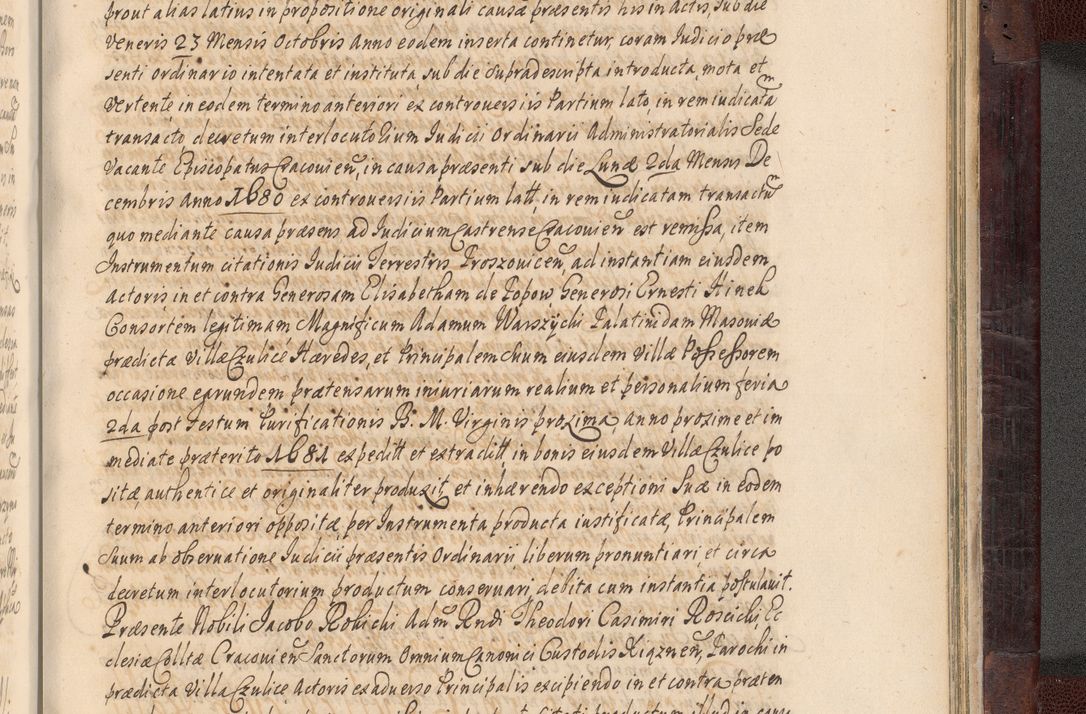 prout alias latius in propositione originali causæ præsentis his in actis, sub die
Veneris 23 Mensis Octobris Anno eodem inserta continetur, coram Iudicio præ
senti ordinario intentata et instituta, sub die supradescripta introducta, mota et
vertente in eodem termino anteriori ex controversiis Partium lato, in rem iudicatã
transacto, decretum interlocutorium Iudicii Ordinarii Administratorialis Sede
Vacante Episcopatus Cracovieñ, in causa præsenti sub die Lunæ 2da Mensis De
cembris Anno 1680 ex controversiis Partium latt, in rem iudicatam transactũ
quo mediante causa præsens ad Iudicium Castrense Cracovieñ est remissa, item
Instrumentum citationis Iudicii Terrestris Proszoviceñ, ad instantiam eiusdem
Actoris in et contra Generosam Elisabetham de Popow Generosi Ernesti Hinek
Consortem legitimam Magnificum Adamum Warszycki Palatinidam Masoviæ
prædictæ Villæ Czulice Hæredes, et Principalem Suum eiusdem Villæ Possessorem
occasione earundem prætensarum iniuriarum realium et personalium feria
2da post Festum Purificationis B. M. Virginis proxima, anno proxime et im
mediate præterito 1681 expeditt et extraditt, in bonis eiusdem Villæ Czulice po
sitæ, authentice et originaliter produxit, et inhærendo exceptioni Suæ in eodem
termino anteriori oppositæ, per Instrumenta producta iustificatæ, Principalem
Suum ab observatione Iudicii præsentis Ordinarii liberum pronuntiari, et circa
decretum interlocutorium productum conservari, debita cum instantia postulavit.
Præsente Nobili Jacobo Rokicki Admũ Rndi Theodori Casimiri Roscicki, Ec
clesiæ Colltæ Cracovieñ Sanctorum Omnium Canonici Custodis Xiązneñ, Parochi in
prædicta Villa Czulice Actoris ex adverso Principalis excipiendo in et contra præten